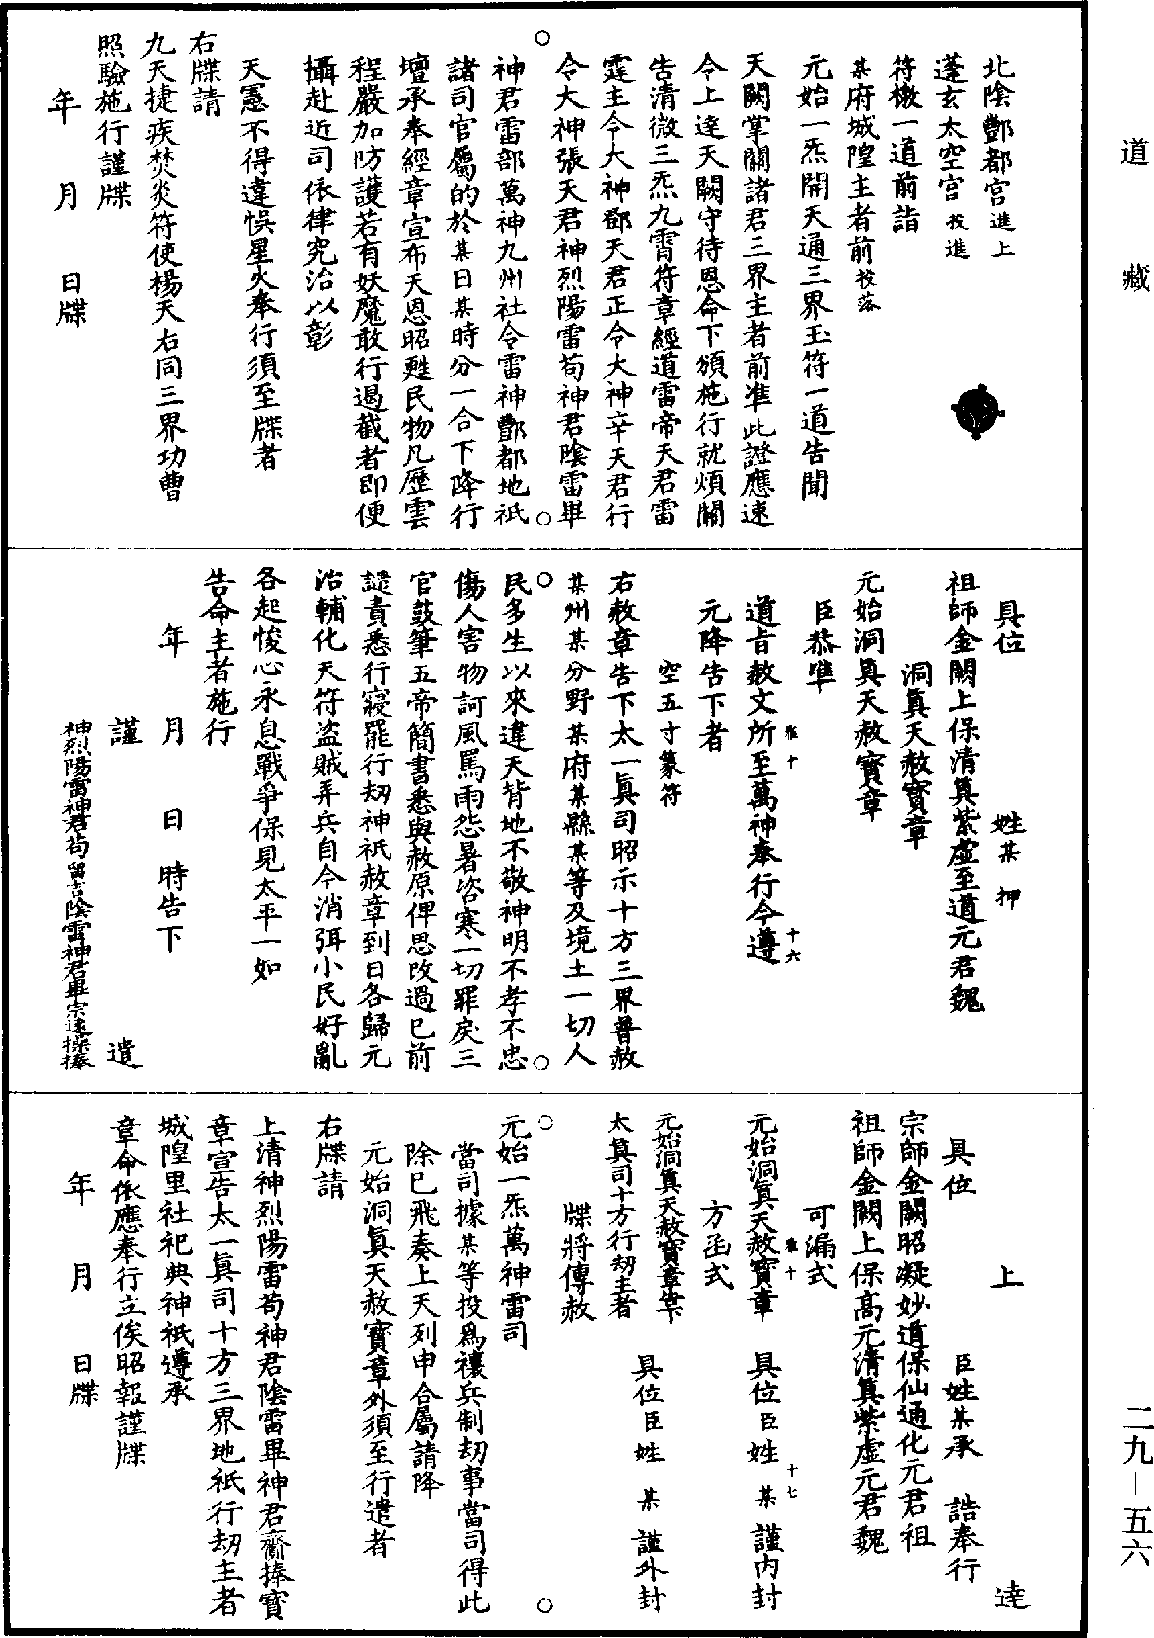 道藏
北陰酆都宮進上
蓬玄太空宮投進
符檄一道前詣
某府城隍主者前投落
元始一炁開天通三界玉符一道告聞
天闕掌關諸君三界主者前准此證應速
令上達天闕守待恩命下頒施行就煩關
告清微三炁九霄符章經道雷帝天君雷
霆主令大神鄧天君正令大神辛天君行
令大神張天君神烈陽雷苟神君陰雷畢
神君雷部萬神九州社令雷神酆都地祇
諸司官屬的於某日某時分一合下降行
壇承奉經章宣布天恩昭甦民物凡歷雲
程嚴加防護若有妖魔敢行遏截者即便
攝赴近司依律究治以彰
天憲不得違悞星火奉行須至牒者
右牒請
九天捷疾焚炎符使楊天右同三界功曹
照驗施行謹牒
年 月 日牒
具位 姓某 押
祖師金闕上保清真紫虛至道元君魏
洞真天赦寶章
元始洞真天赦寶章
臣恭準
雅十 十六
道旨赦文所至萬神奉行今遵
元降告下者
空五寸篆符
右赦章告下太一真司昭示十方三界普赦
某州某分野某府某縣某等及境土一切人
民多生以來違天背地不敬神明不孝不忠
傷人害物訶風罵雨怨暑咨寒一切罪戾三
官鼓筆五帝簡書悉與赦原俾思改過已前
譴責悉行寢罷行劫神祇赦章到日各歸元
治輔化天符盜賊弄兵自今消弭小民好亂
各起悛心永息戰爭保見太平一如
告命主者施行
年 月 日 時告下
謹 遣
神烈陽雷神君苟留吉陰雷神君畢宗遠操捧
上 達
具位 臣姓某承 誥奉行
宗師金闕昭凝妙道保仙通化元君祖
祖師金闕上保高元清真紫虛元君魏
可漏式
雅十 十七
元始洞真天赦寶章 具位臣姓 某 謹內封
方函式
元始洞真天赦寶章某
太真司十方行劫主者 具位臣姓 某 謹外封
牒將傳赦
元始一炁萬神雷司
當司據某等投為禳兵制劫事當司得此
除已飛奏上天列申合屬請降
元始洞真天赦寶章外須至行遣者
右牒請
上清神烈陽雷苟神君陰雷畢神君齎捧寶
章宣告太一真司十方三界地祇行劫主者
城隍里社祀典神祇遵承
章命依應奉行立俟昭報謹牒
年 月 日牒
二九—五六